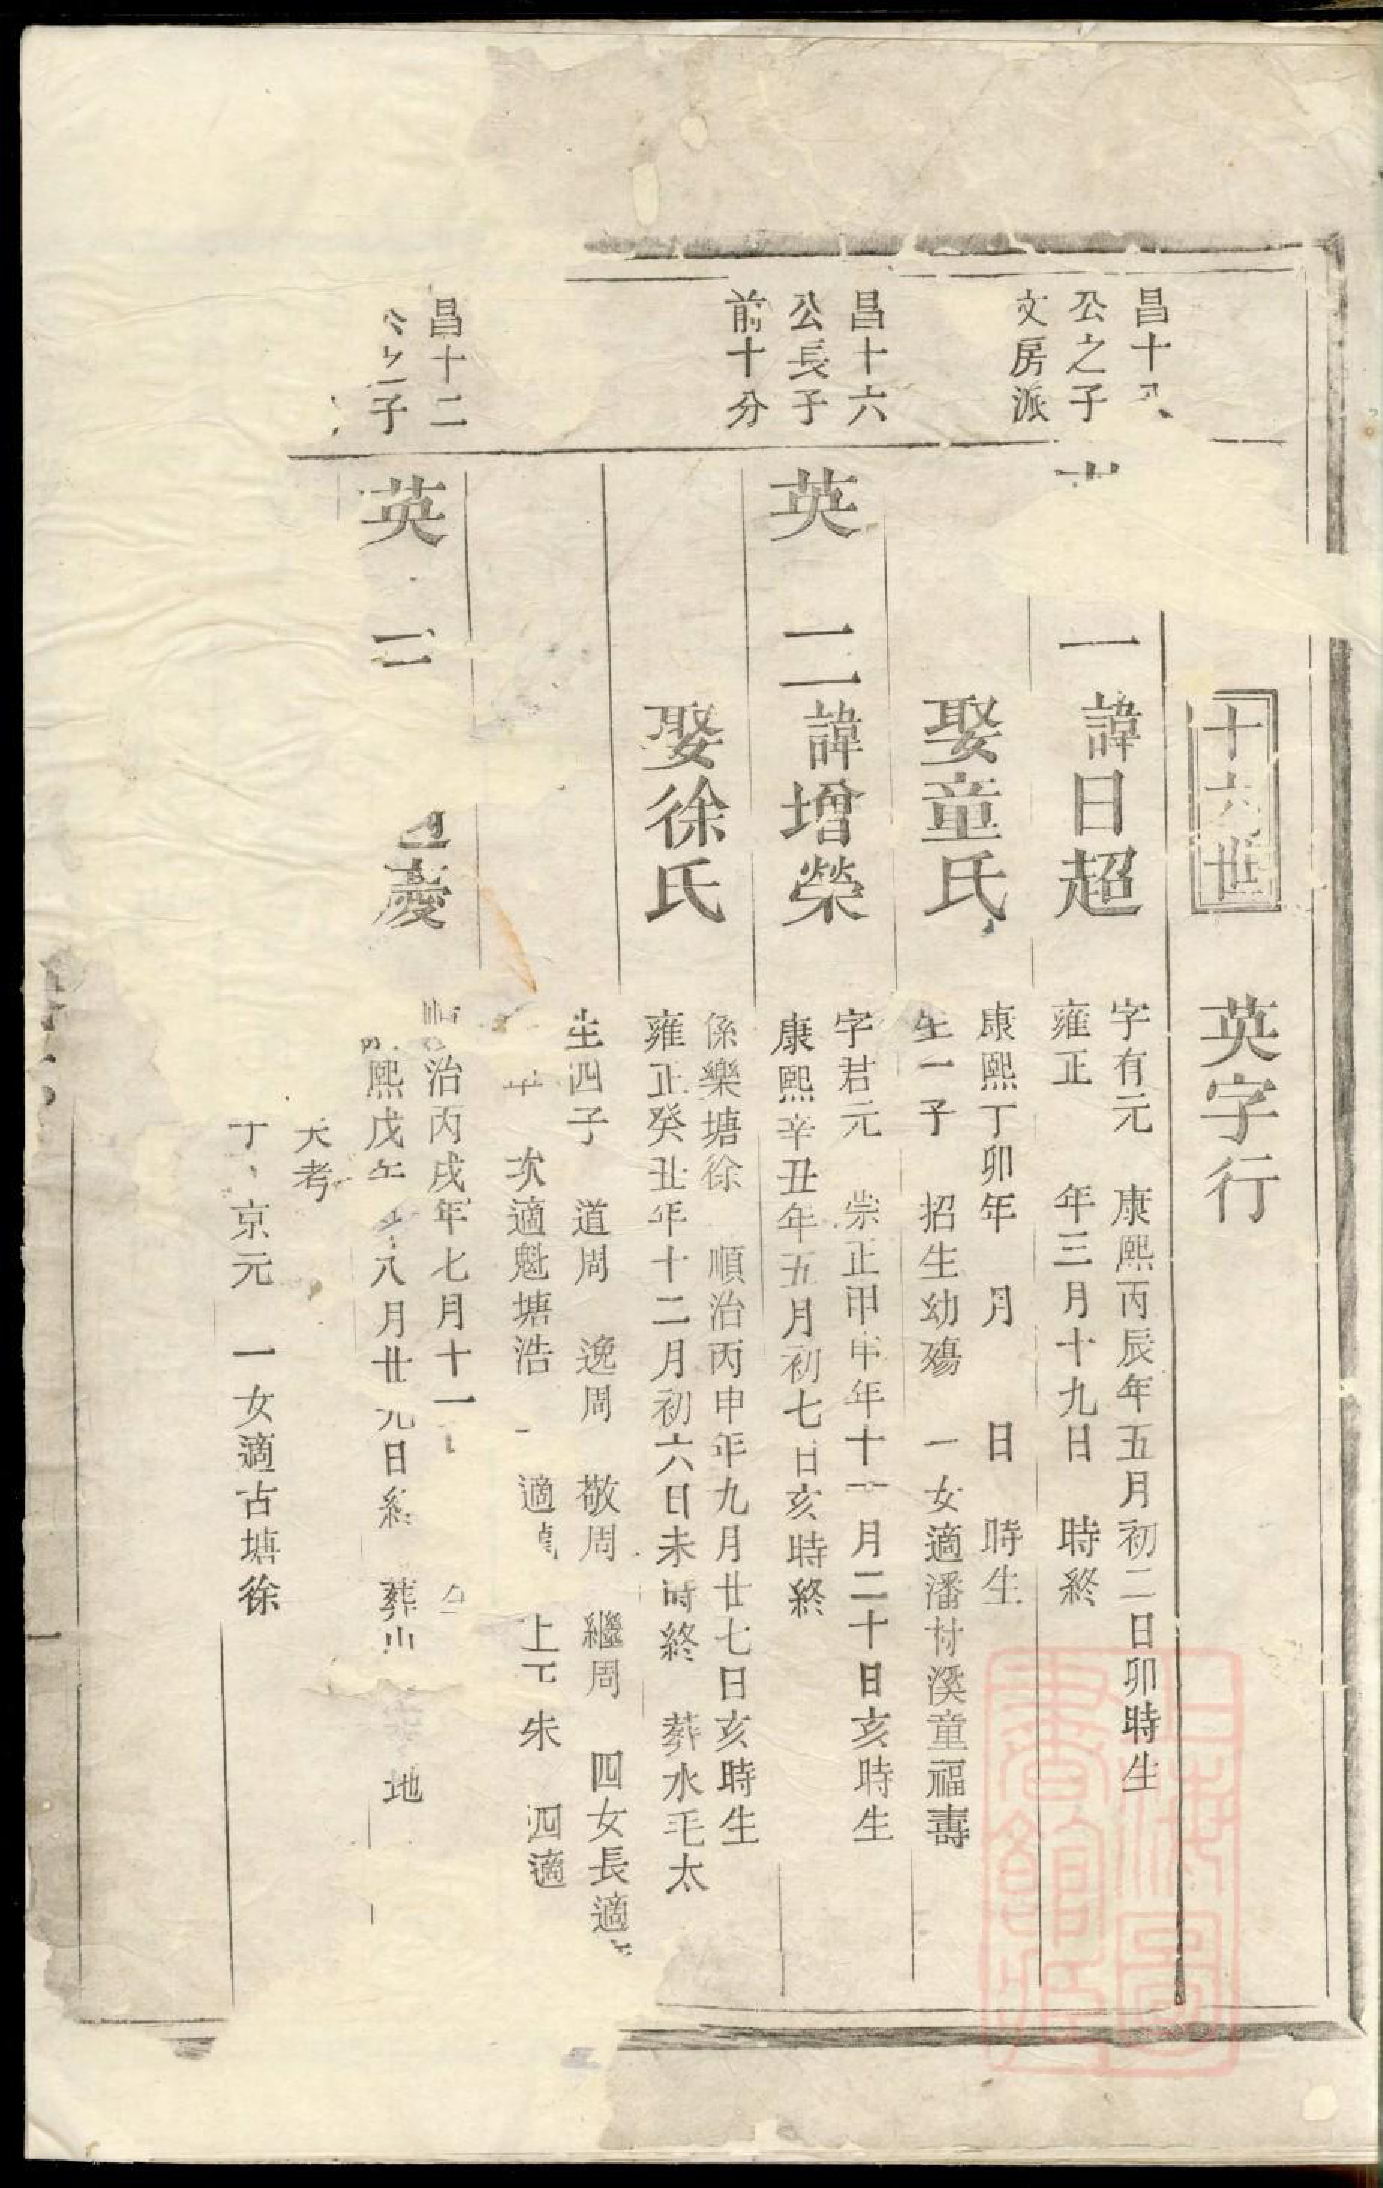 十六世　英字行
昌十
公之子
文房派
一諱日超
字有元　康熙丙辰年五月初二日卯時生
雍正　年三月十九日　時終
娶童氏
康熙丁卯年　月　日　時生
生一子　招生幼殤　一女適潘村溪童福壽
昌十六
公長子
前十分
英二諱增榮
字君元　崇正甲申年十一月二十日亥時生
康熙辛丑年五月初七日亥時終
娶徐氏
係樂塘徐　順治丙申年九月廿七日亥時生
雍正癸丑年十二月初六日未時終　葬水毛太
生四子　道周　逸周　敬周　繼周　四女長適
次適魁塘浩　適　上　朱　四適
昌十二
公之子
英三　慶
順治丙戌年七月十一
熙戊午　八月廿九日終　葬山　地
考
京元　一女適古塘徐
上海圖書館藏